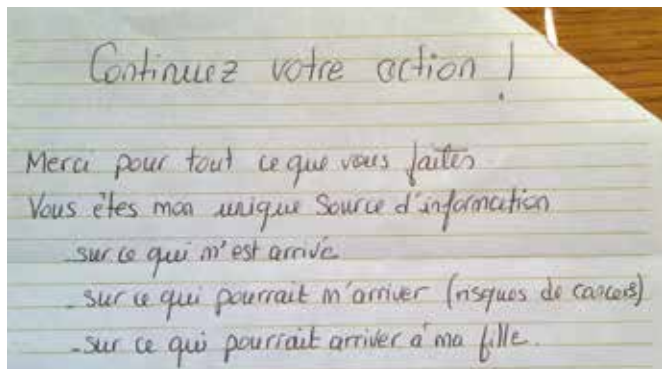 Continuez votre action !
Merci pour tout ce que vous faites
Vous êtes mon unique source d'information
- sur ce qui m'est arrivé
- sur ce qui pourrait m'arriver (risques de cancers)
- sur ce qui pourrait arriver à ma fille.